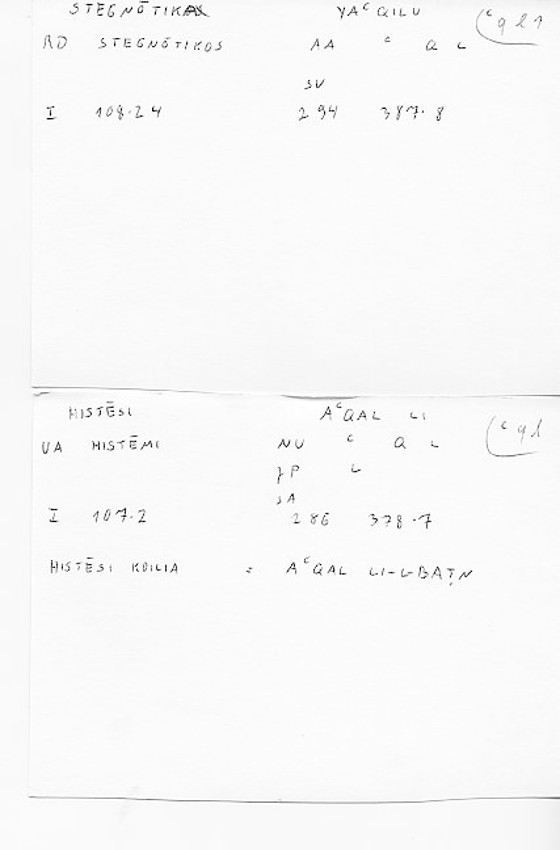 STEGNŌTIKAS YAᶜQILU (ᶜql1
RD STEGNŌTIKOS AA ᶜ Q L
SV
I 108.24 294 387.8
HISTĒSI AᶜQAL LI (ᶜql
VA HISTĒMI NU ᶜ Q L
JP L
SA
I 107.2 286 378.7
HISTĒSI KOILIA = AᶜQAL LI-L-BAṬN